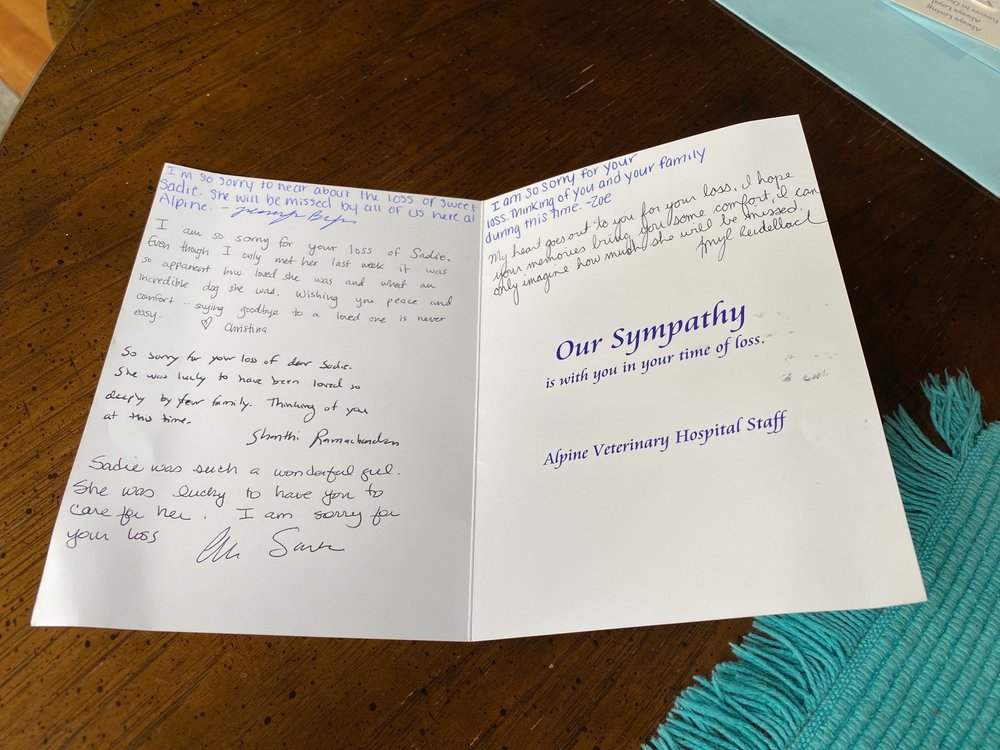 I'm so sorry to hear about the loss of sweet
Sadie. She will be missed by all of us here at
Alpine.
I am so sorry for your loss of Sadie.
Even though I only met her last week it was
so apparent how loved she was and what an
incredible dog she was. Wishing you peace and
comfort - saying goodbye to a loved one is never
easy. ♡ Christina
So sorry for your loss of dear Sadie.
She was lucky to have been loved so
deeply by your family. Thinking of you
at this time.
Shanthi Ramachandran
Sadie was such a wonderful girl.
She was lucky to have you to
care for her. I am sorry for
your loss
I am so sorry for your
loss. Thinking of you and your family
during this time. -Zoe
My heart goes out to you for your loss. I hope
your memories bring you some comfort, I can
only imagine how much she will be missed.
Our Sympathy
is with you in your time of loss.
Alpine Veterinary Hospital Staff
Always Loving
Always Loyal